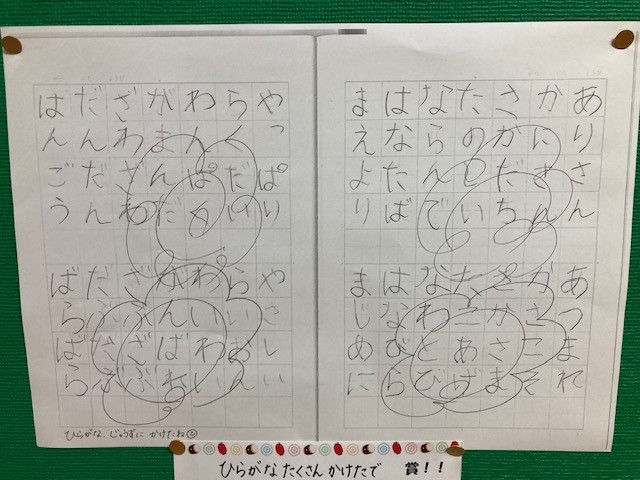 ありさん
かにさん
さかだち
たのしい
ならんで
はなたば
まえより
あつまれ
かさこそ
さかさま
たこあげ
なわとび
はなびら
まじめに
やっぱり
らくだい
わんぱく
がまんだ
ざわざわ
だんだん
はんごう
やさしい
らいおん
わいわい
がんばれ
ざぶざぶ
だぶだぶ
ばらばら
ひらがな、じょうずに かけたね
ひらがな たくさん かけたで 賞！！